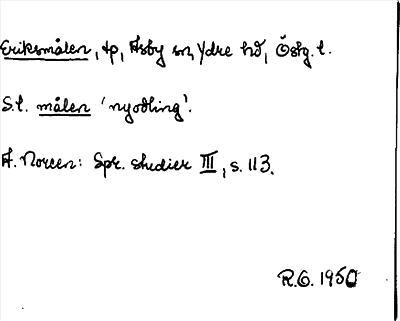 Eriksmålen, tp, Asby sn, Ydre hd, Östg. l.
S.l. målen 'nyodling'.
A. Noreen: Spr. studier III, s. 113.
R.O. 1950